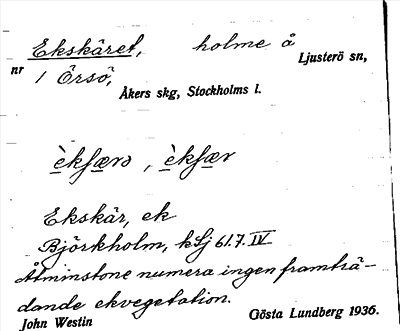 Ekskäret, holme å Ljusterö sn,
nr 1 Örsö,
Åkers skg, Stockholms l.
èkſærə, èkſær
Ekskär, ek
Björkholm, kSj 61.7. IV
Åtminstone numera ingen framträ-
dande ekvegetation.
John Westin Gösta Lundberg 1936.